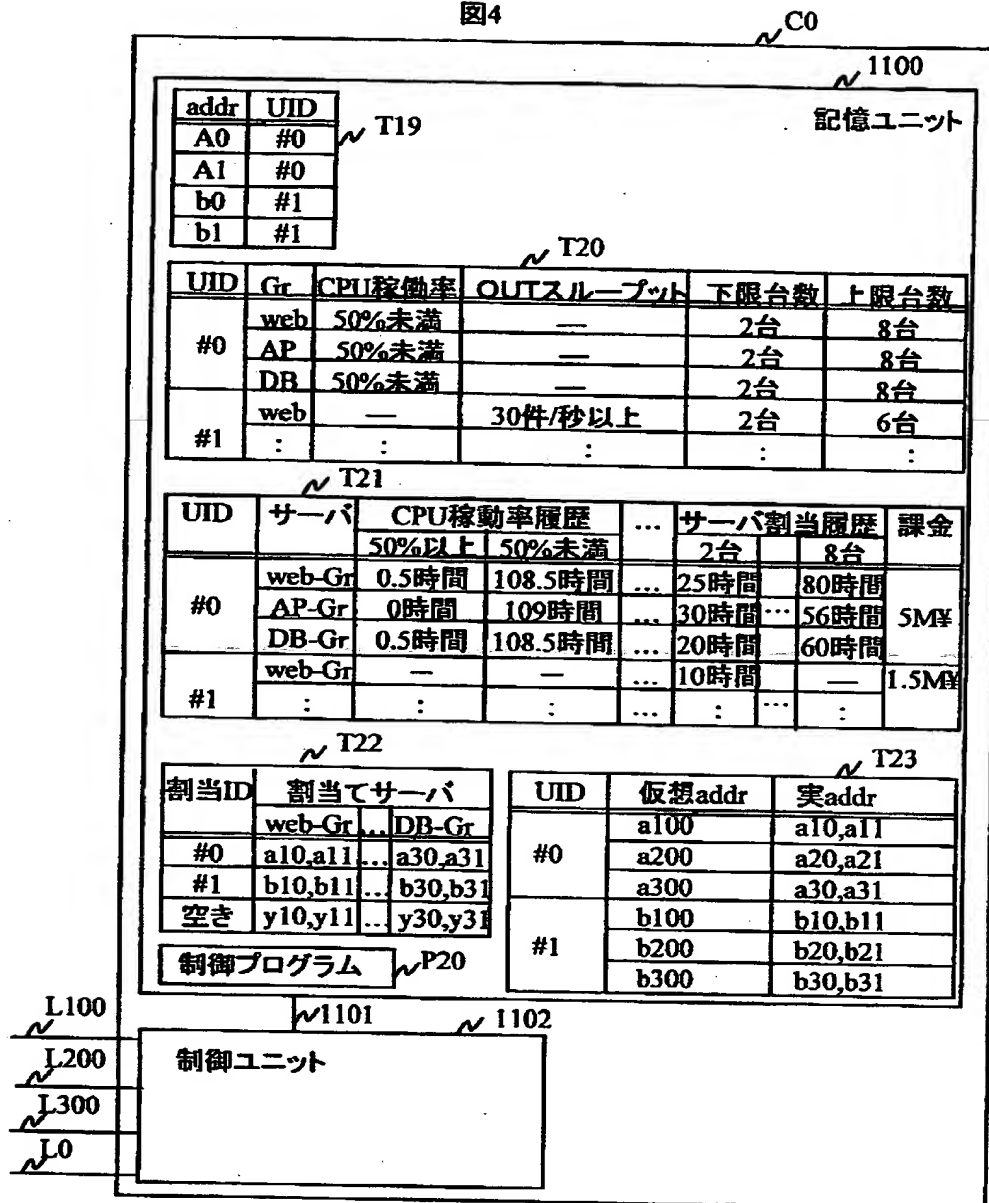 図4
C0
1100
記憶ユニット
addr UID
A0 #0
A1 #0
b0 #1
b1 #1
T19
T20
UID Gr CPU稼働率 OUTスループット 下限台数 上限台数
#0
web 50%未満 — 2台 8台
AP 50%未満 — 2台 8台
DB 50%未満 — 2台 8台
#1
web — 30件/秒以上 2台 6台
: : : : :
T21
UID サーバ CPU稼動率履歴 … サーバ割当履歴 課金
50%以上 50%未満 2台 8台
#0
web-Gr 0.5時間 108.5時間 … 25時間 80時間
AP-Gr 0時間 109時間 … 30時間 … 56時間 5M¥
DB-Gr 0.5時間 108.5時間 … 20時間 60時間
#1
web-Gr — — … 10時間 — 1.5M¥
: : : … : … :
T22
割当ID 割当てサーバ
web-Gr … DB-Gr
#0 a10,a11 … a30,a31
#1 b10,b11 … b30,b31
空き y10,y11 … y30,y31
制御プログラム P20
T23
UID 仮想addr 実addr
#0
a100 a10,a11
a200 a20,a21
a300 a30,a31
#1
b100 b10,b11
b200 b20,b21
b300 b30,b31
1101
1102
制御ユニット
L100
L200
L300
L0